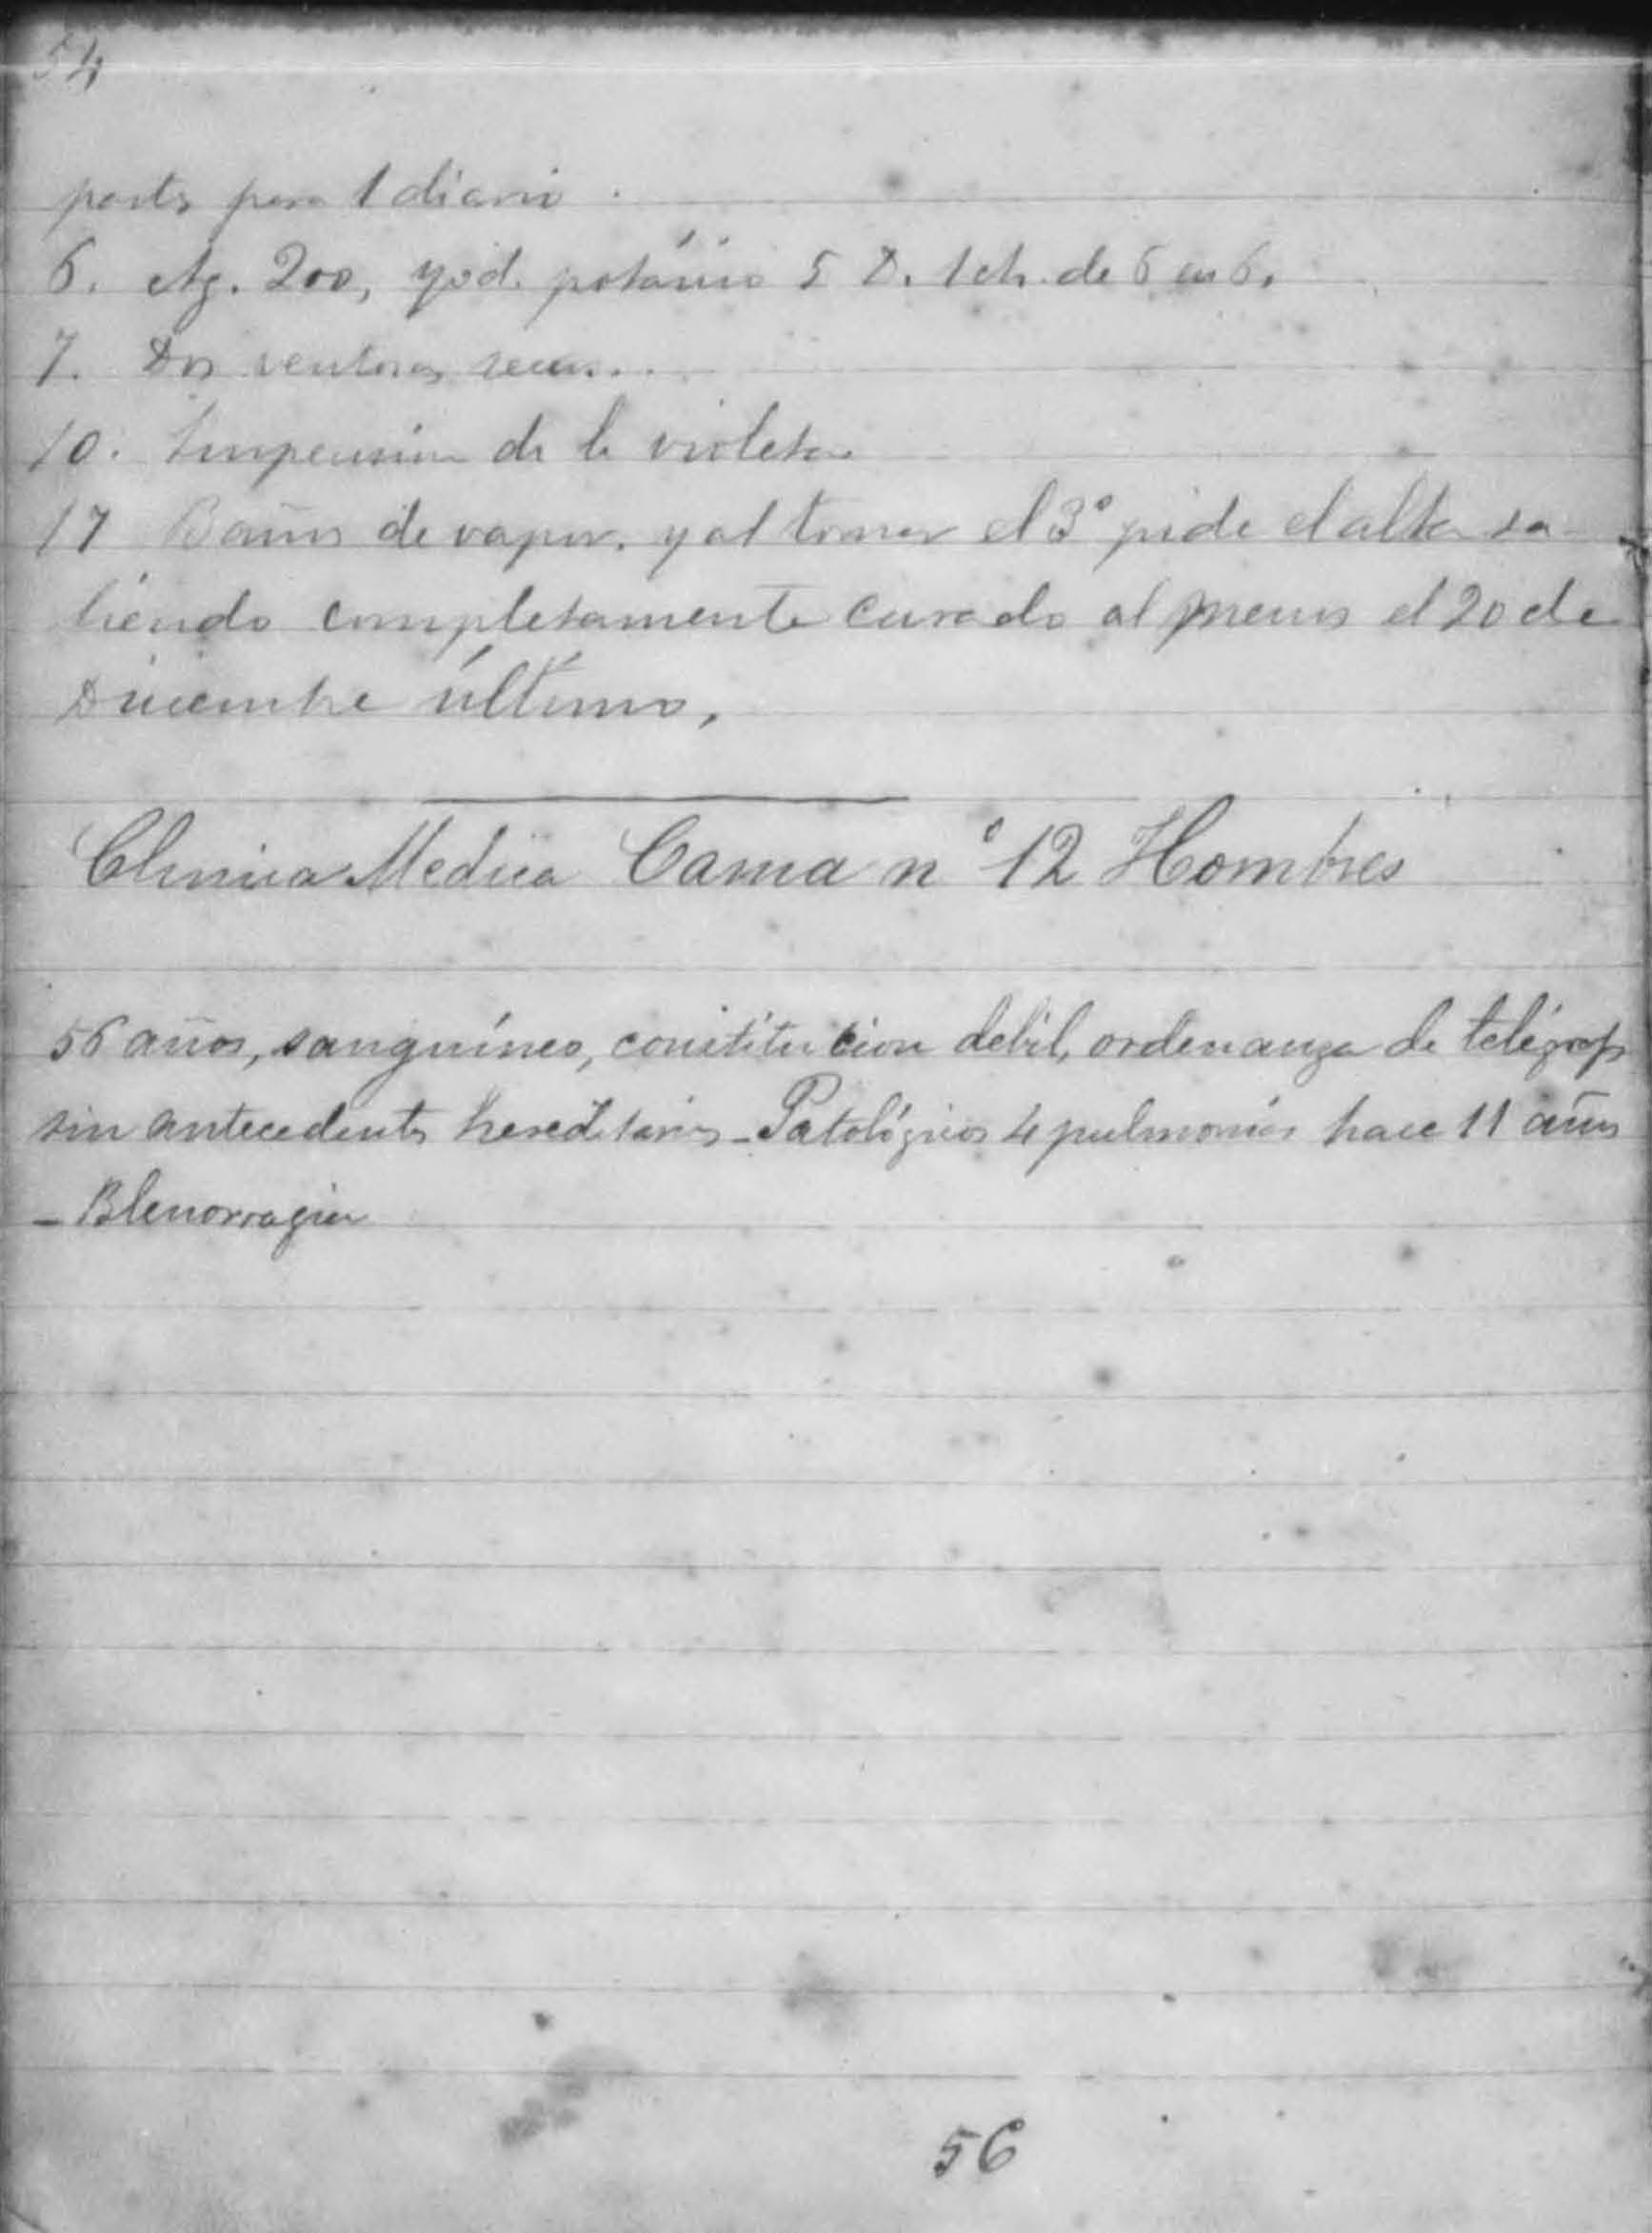 54
partes para 1 diario.
6. Ag. 200, yod. potásico 5 D. 1 ch. de 6 en 6.
7. Dos ventosas secas..
10. Suspension de la violeta
17 Baños de vapor, y al tomar el 3º pide el alta sa-
liendo completamente curado al menos el 20 de
Diciembre último,
Clinica Medica Cama nº 12 Hombres
56 años, sanguíneo, constitucion debil, ordenanza de telégrafs
sin antecedentes hereditarios - Patológicos 4 pulmonías hace 11 años
- Blenorragia
56